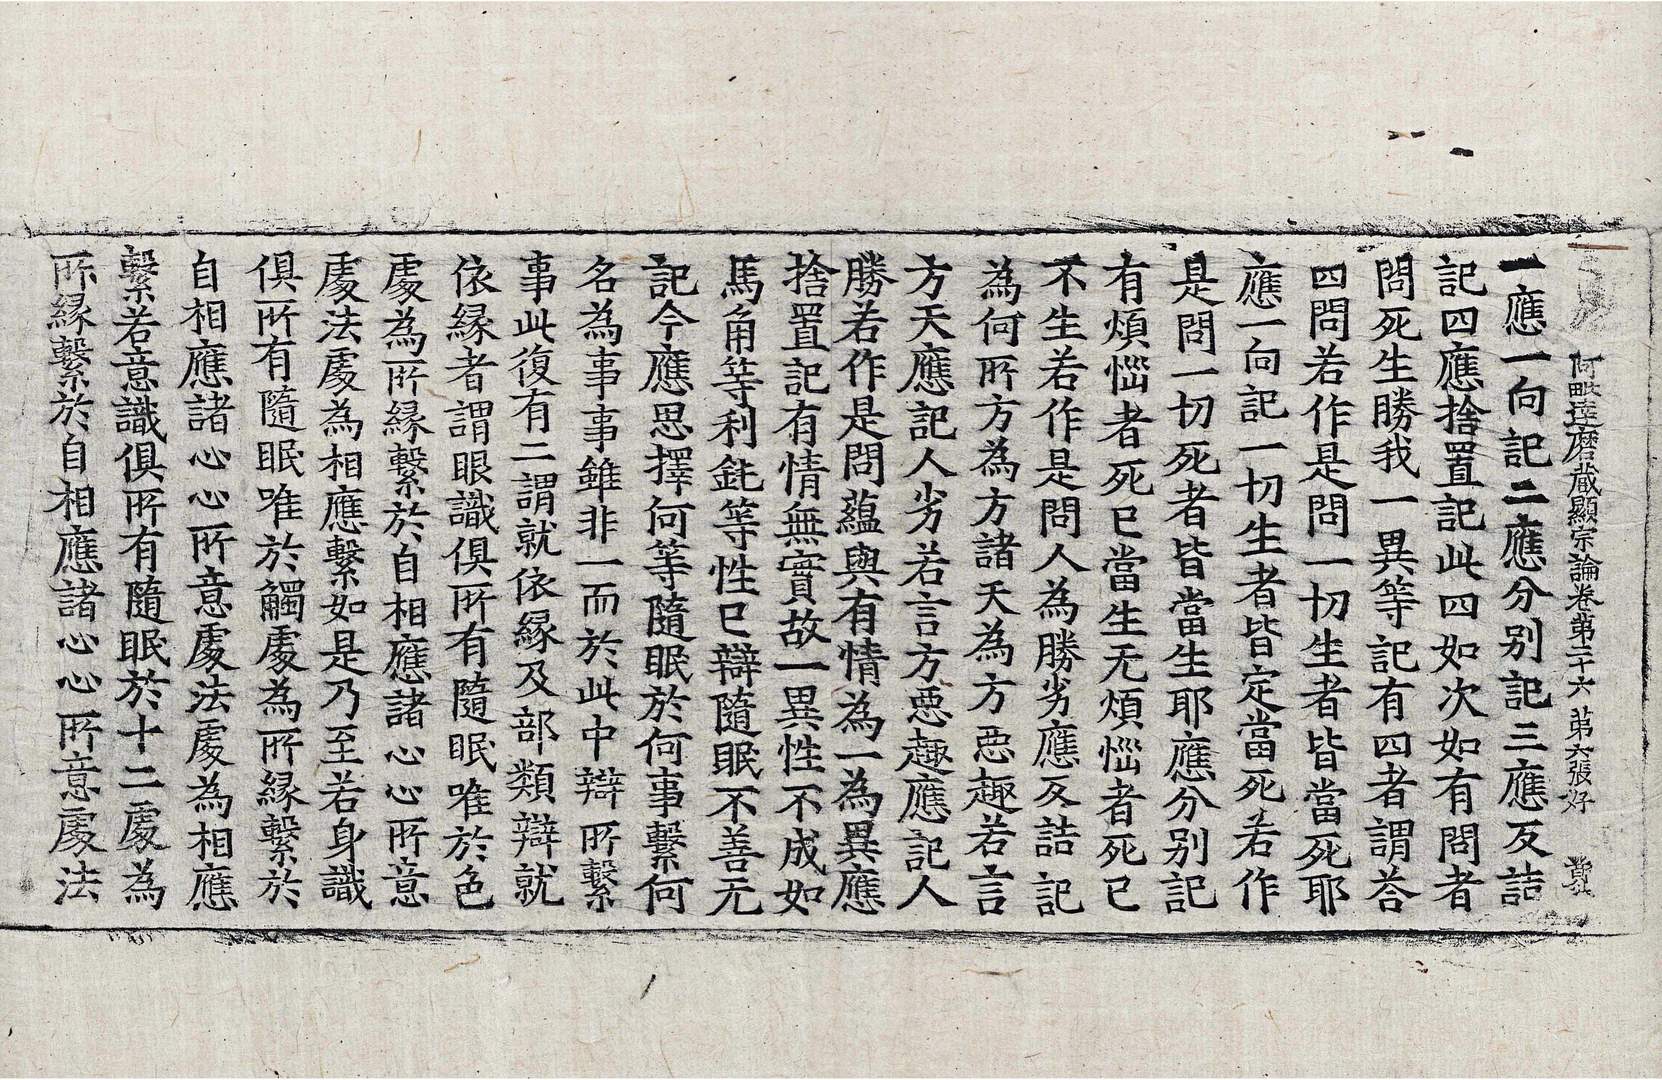 阿毗達磨蔵顯宗論卷第二十六 第六張 好
一應一向記二應分別記三應反詰
記四應捨置記此四如次如有問者
問死生勝我一異等記有四者謂荅
四問若作是問一切生者皆當死耶
應一向記一切生者皆定當死若作
是問一切死者皆當生耶應分別記
有煩惱者死已當生无煩惱者死已
不生若作是問人為勝劣應反詰記
為何所方為方諸天為方惡趣若言
方天應記人劣若言方惡趣應記人
勝若作是問蘊與有情為一為異應
捨置記有情無實故一異性不成如
馬角等利鈍等性已辯隨眠不善无
記今應思擇何等隨眠於何事繫何
名為事事雖非一而於此中辯所繫
事此復有二謂就依緣及部類辯就
依緣者謂眼識俱所有隨眠唯於色
處為所緣繫於自相應諸心心所意
處法處為相應繫如是乃至若身識
俱所有隨眠唯於觸處為所緣繫於
自相應諸心心所意處法處為相應
繫若意識俱所有隨眠於十二處為
所緣繫於自相應諸心心所意處法